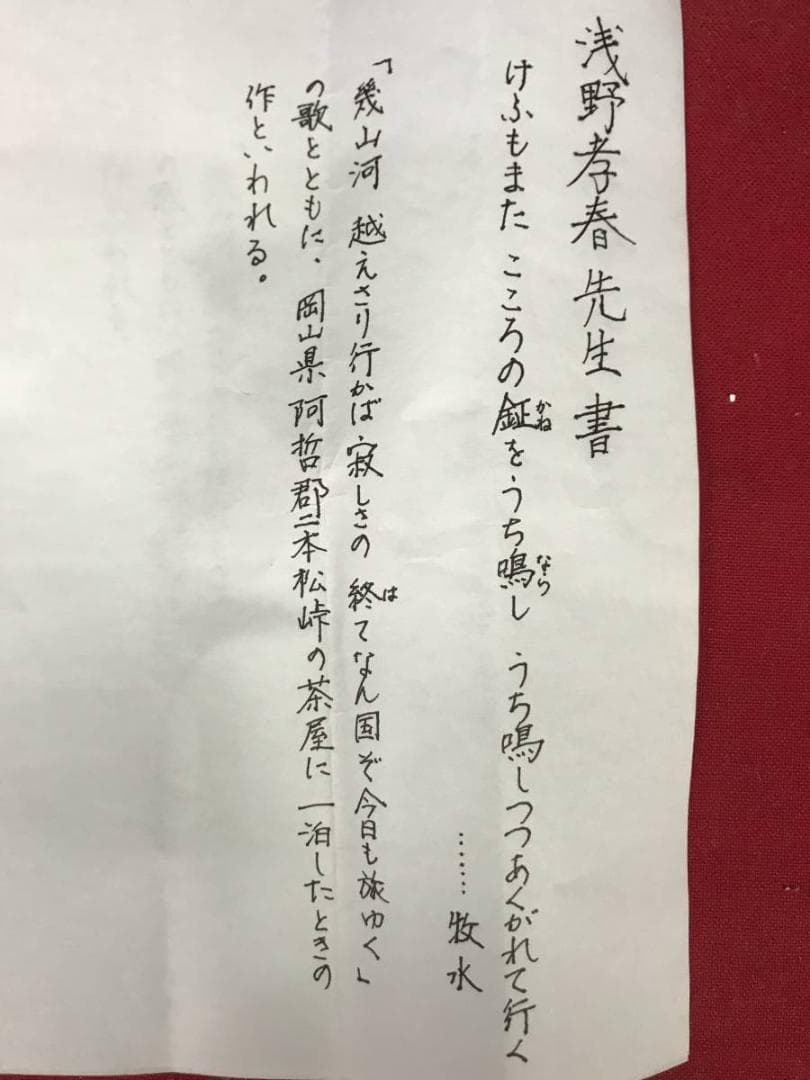 浅野孝春先生書
けふもまた こころの鉦をうち鳴し うち鳴しつつあくがれて行く
かね
なら
……… 牧水
「幾山河 越えさり行かば 寂しさの 終てなん国ぞ今日も旅ゆく」
は
の歌とともに、岡山県阿哲郡二本松峠の茶屋に一泊したときの
作といわれる。